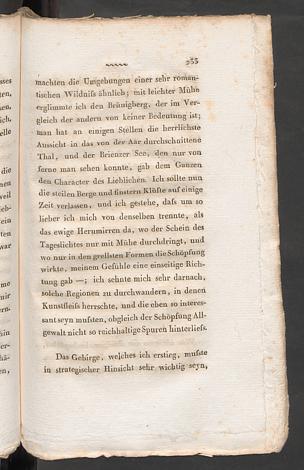 233
machten die Umgebungen einer sehr roman-
tischen Wildniſs ähnlich; mit leichter Mühe
erglimmte ich den Bräunigberg, der im Ver-
gleich der andern von keiner Bedeutung ist;
man hat an einigen Stellen die herrlichste
Aussicht in das von der Aar durchschnittene
Thal, und der Brienzer See, den nur von
ferne man sehen konnte, gab dem Ganzen
den Character des Lieblichen. Ich sollte nun
die steilen Berge und finstern Klüfte auf einige
Zeit verlassen, und ich gestehe, daſs um so
lieber ich mich von denselben trennte, als
das ewige Herumirren da, wo der Schein des
Tageslichtes nur mit Mühe durchdringt, und
wo nur in den grellsten Formen die Schöpfung
wirkte, meinem Gefühle eine einseitige Rich-
tung gab —; ich sehnte mich sehr darnach,
solche Regionen zu durchwandern, in denen
Kunstfleiſs herrschte, und die eben so interes-
sant seyn muſsten, obgleich der Schöpfung All-
gewalt nicht so reichhaltige Spuren hinterlieſs.
Das Gebirge, welches ich erstieg, muſste
in strategischer Hinsicht sehr wichtig seyn,